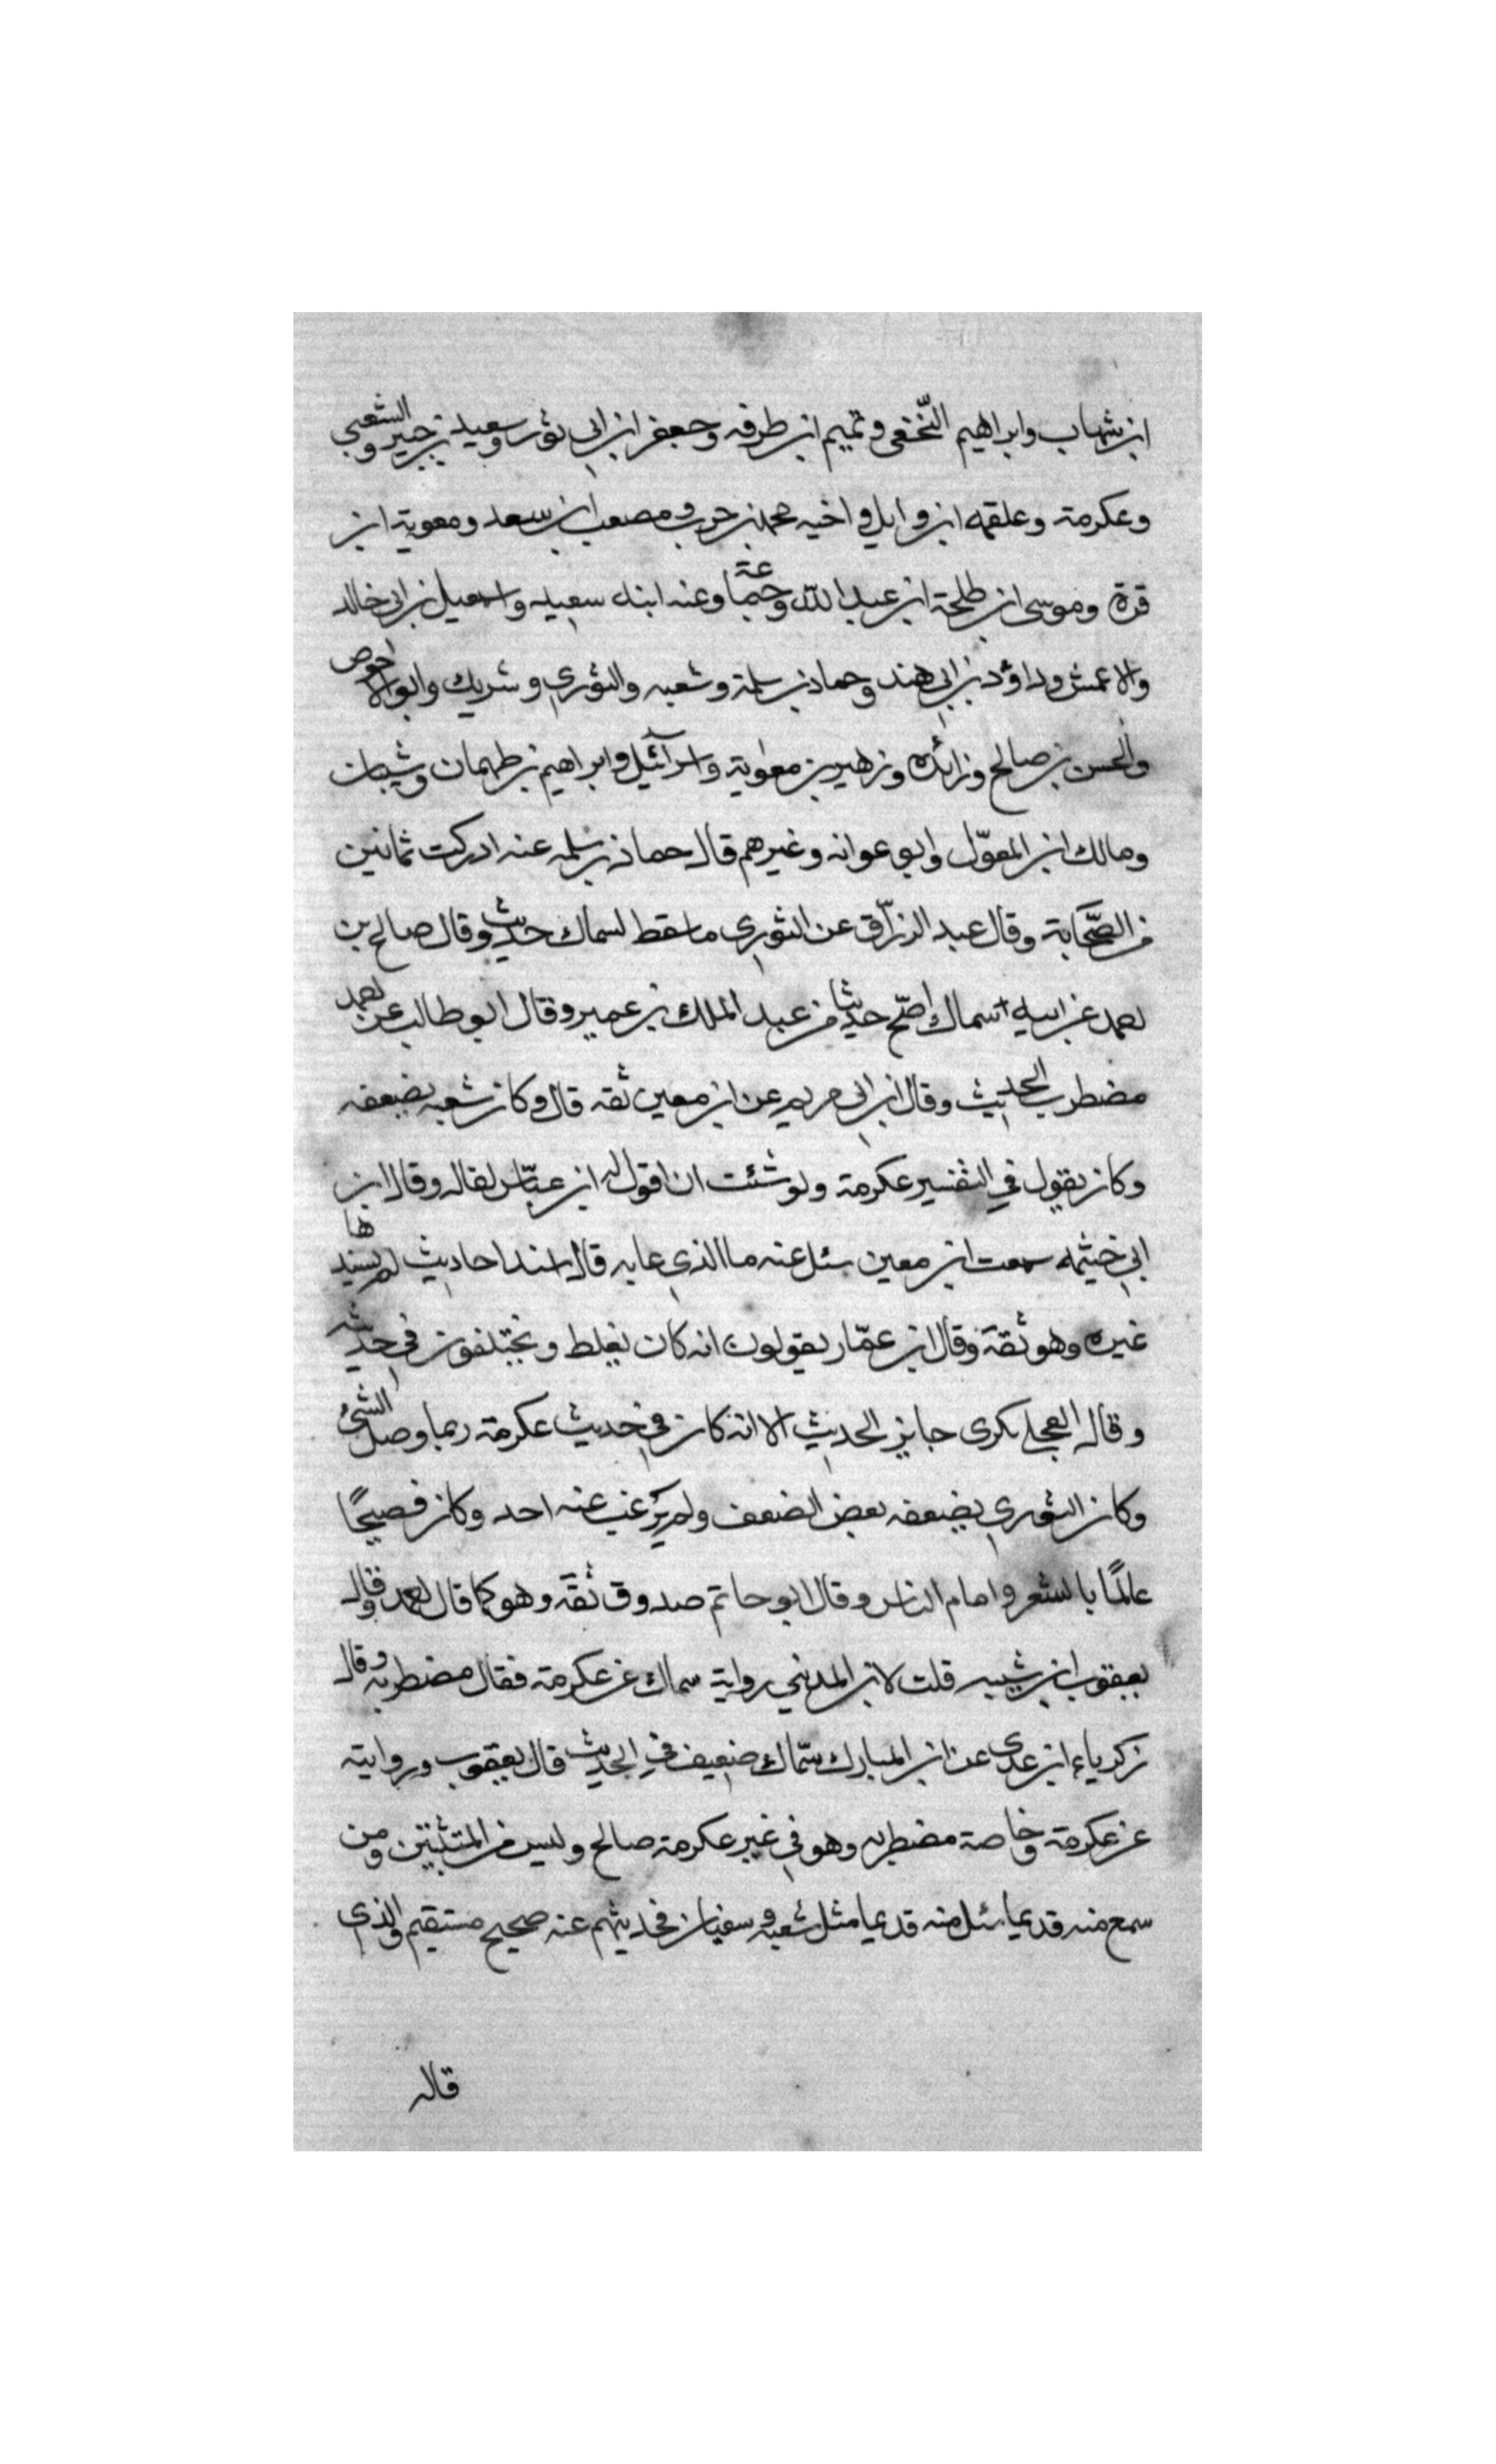 ابن شهاب وابراهيم النّخعى وتميم ابن طرفه وجعفر ابن ابى ثور وسعيد بن جبير والشعبي
وعكرمة وعلقمه ابن وايل واخيه محمد بن حرب ومصعب ابن سعد ومعوية ابن
قرة وموسى ابن طلحة ابن عبد الله وجماعة وعنه ابنه سعيد واسمعيل بن ابى خالد
والاعمش وداؤد بن ابى هند وحماد بن سلمة وشعبه والثوري وشريك وابو الاحوص
والحسن بن صالح وزائده وزهير بن معاوية واسرآئيل وابراهيم بن طهمان وشيبان
ومالك ابن المعوّل وابو عوانه وغيرهم قال حماد بن سلمه عنه ادركت ثمانين
من الصّحَابة وقال عبد الرزاق عن الثوري ما سقط لسماك حديث وقال صالح بن
احمد عن ابيه سماك اصّح حديثا من عبد الملك بن عمير وقال ابو طالب عن احمد
مضطرب الحديث وقال ابن ابى مريم عن ابن معين ثقه قال وكان شعبه يضعفه
وكان يقول في التفسير عكرمة ولو شئت ان اقول له ابن عبّاس لقاله وقال ابن
ابي خيثمه سمعت ابن معين سئل عنه ما الذي عابه قال اسند احاديث لم يسندها
غيره وهو ثقة وقال ابن عمّار يقولون انه كان يغلط ويختلفون في حديثه
وقال العجلي بكرى جايز الحديث الا انه كان في حديث عكرمة ربما وصل الشئ
وكان الثوري يضعفه بعض الضعف ولم يرغب عنه احد وكان فصيحًا
عالمًا بالشعر وامام الناس وقال ابو حاتم صدوق ثقة وهو كما قال احمد وقال
يعقوب ابن شيبه قلت لابن المديني رواية سماك عن عكرمة فقال مضطربه وقال
زكرياء ابن عدى عن ابن المبارك سّماك ضعيف في الحديث قال يعقوب وروايته
عن عكرمة وخاصة مضطربه وهو في غير عكرمة صالح وليس من المتثبتين ومن
سمع منه قديما سئل منه قديما مثل شعبه وسفيان فحديثهم عنه صحيح مستقيم والذي
قاله